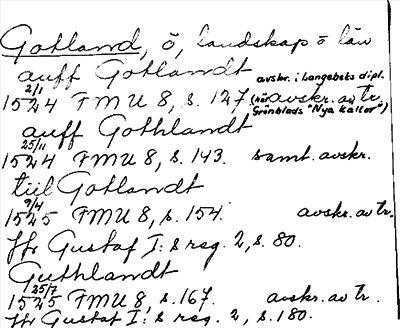 Gotland, ö, landskap o län
auff Gotlandt avskr. i Langebeks dipl.
2/1
1524 FMU 8, s. 127 (här avskr. av tr.
Grönblads "Nya källor")
auff Gothlandt
25/11
1524 FMU 8, s. 143. samt. avskr.
tiil Gotlandt
9/4
1525 FMU 8, s. 154. avskr. av tr.
ffr Gustaf I:s reg. 2, s. 80.
Guthlandt
25/7
1525 FMU 8, s. 167. avskr. av tr.
ffr Gustaf I:s reg. 2, s. 180.